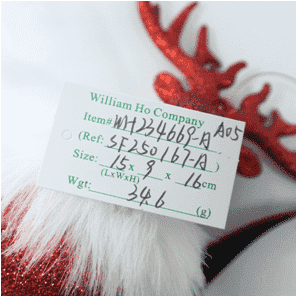 William Ho Company
Item# WH234669-A A05
(Ref: SF250167-A)
Size: 15 x 9 x 16cm
(LxWxH)
Wgt: 346 (g)